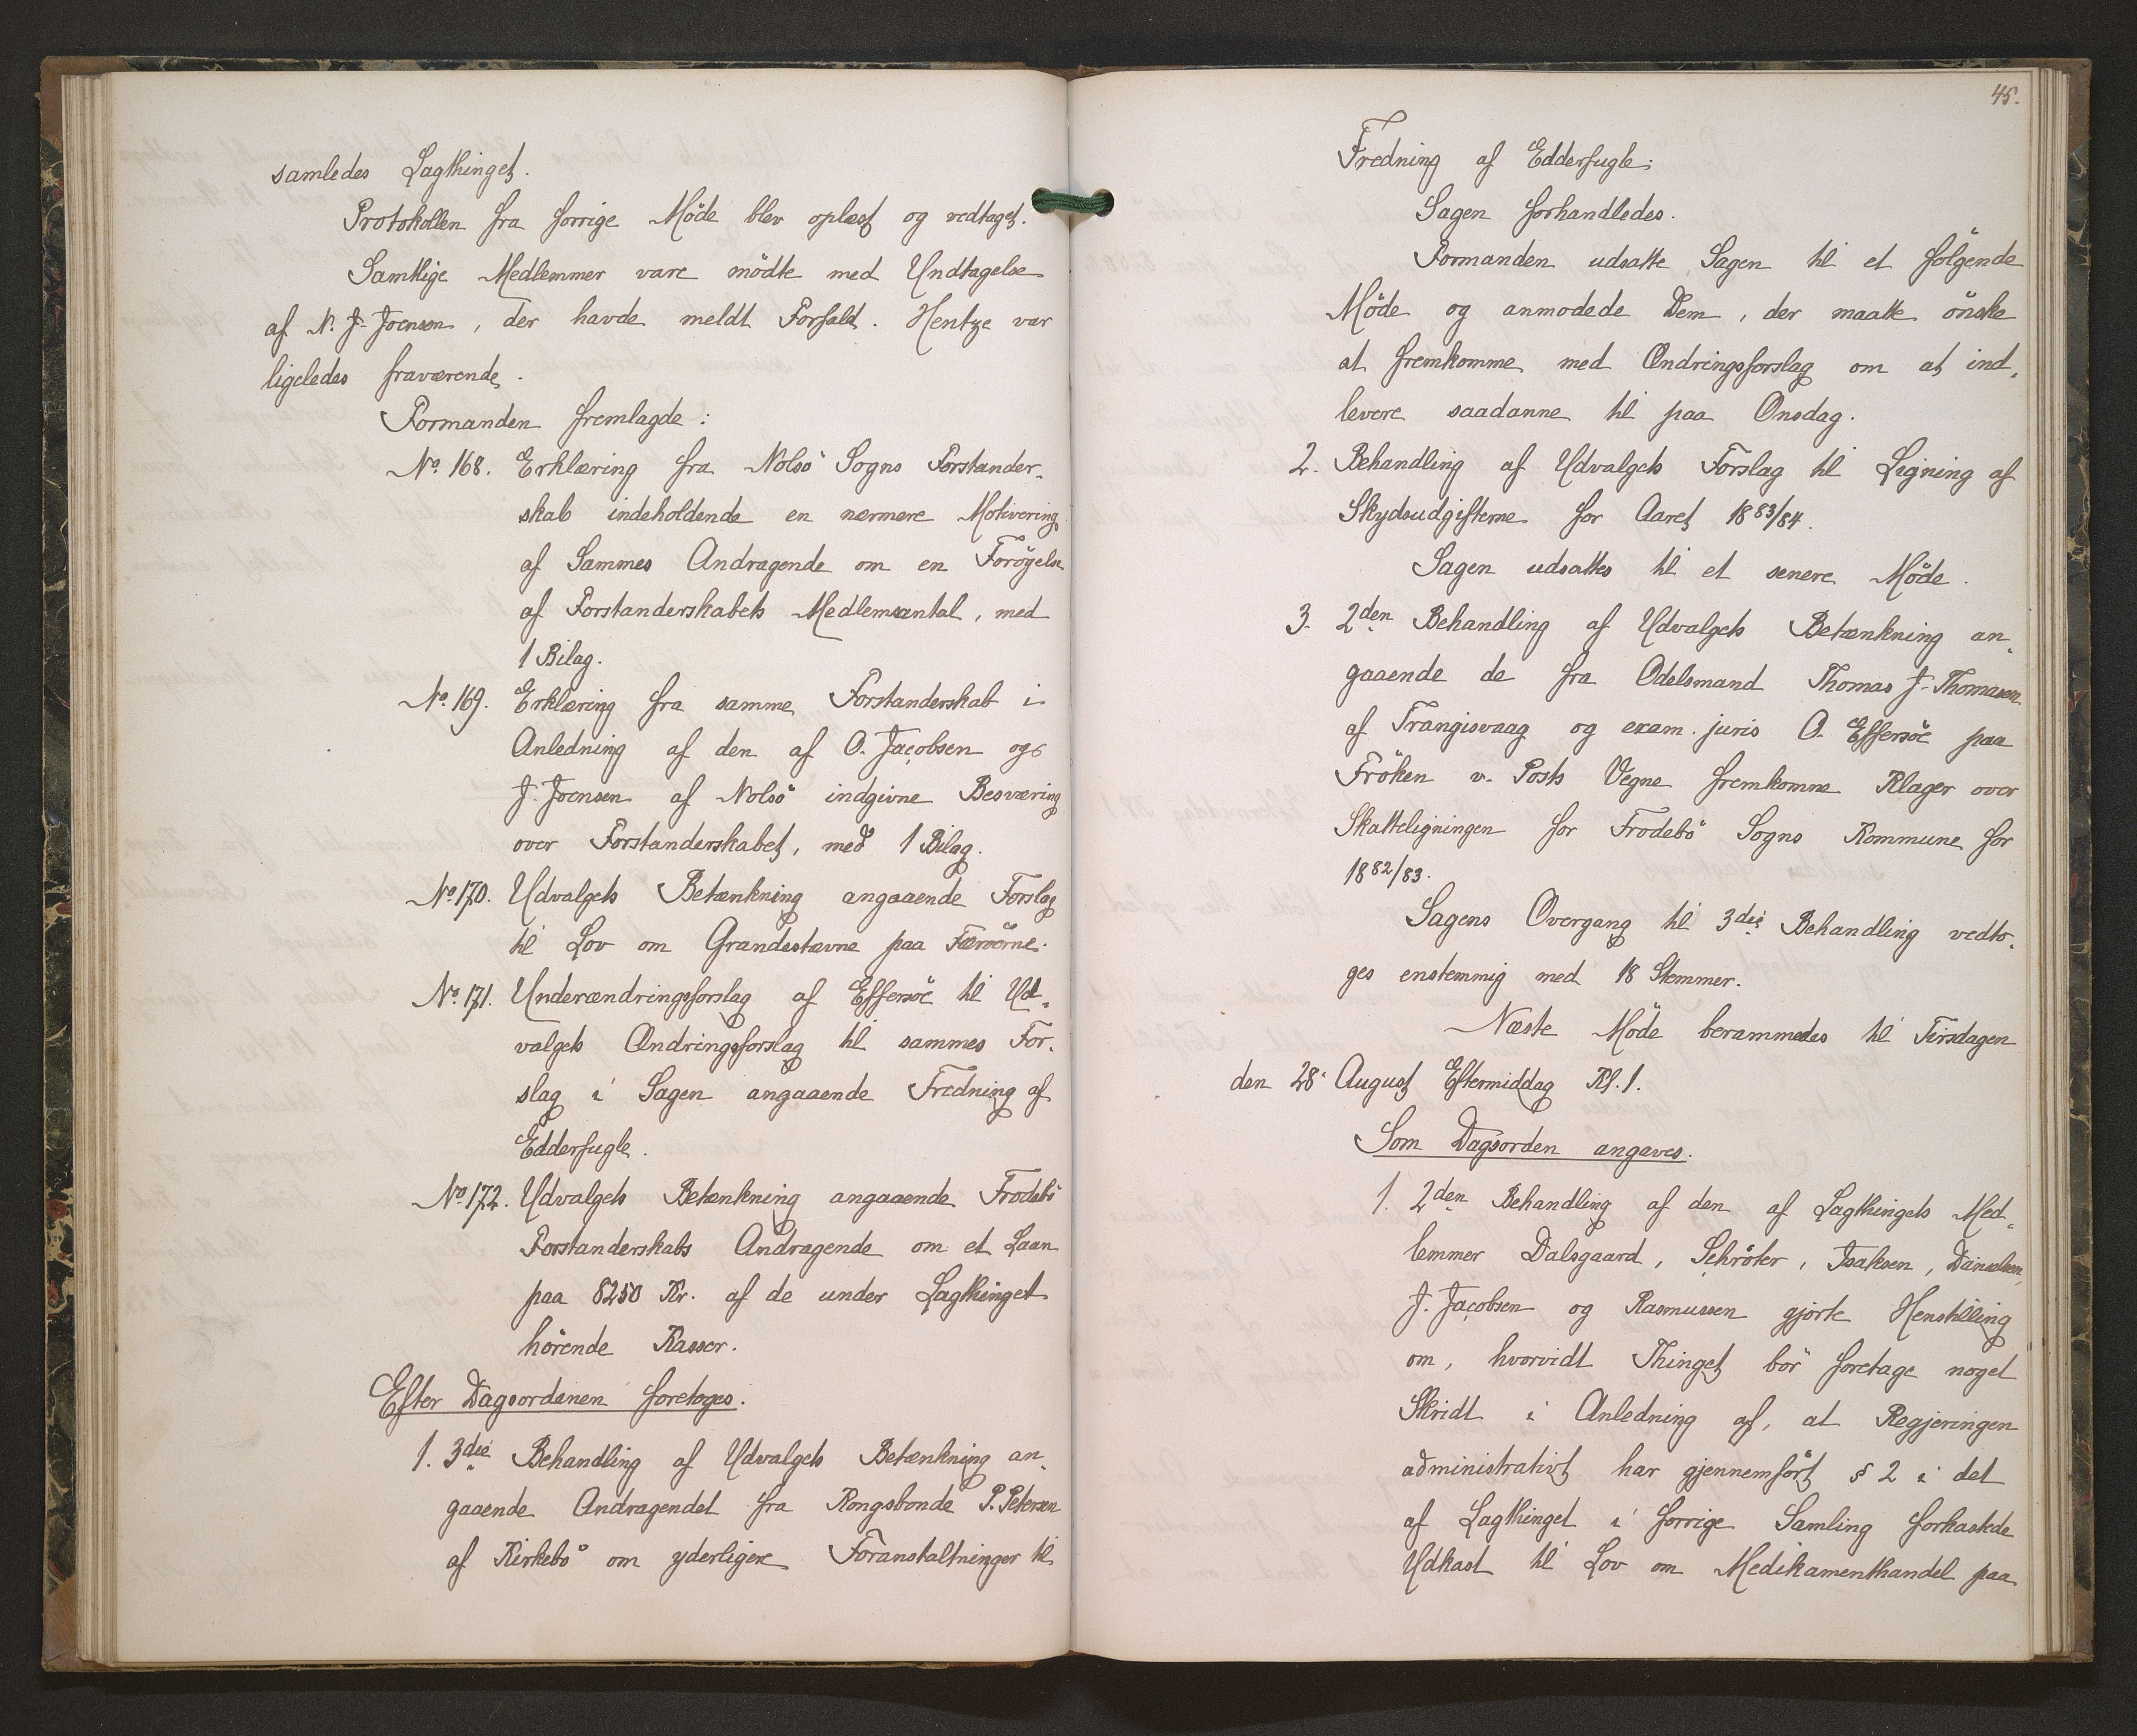 samledes Lagthinget.
Protokollen fra forrige Möde blev oplæst og vedtaget.
Samtlige Medlemmer vare mödte med Undtagelse
af N. J. Joensen, der havde meldt Forfald. Hentze var
ligeledes fraværende.
Formanden fremlagde:
No. 168. Erklæring fra Nolsö Sogns Forstander-
skab indeholdende en nærmere Motivering
af Sammes Andragende om en Forögelse
af Forstanderskabets Medlemsantal, med
1 Bilag.
No. 169. Erklæring fra samme Forstanderskab i
Anledning af den af O. Jacobsen og
J. Joensen af Nolsö indgivne Besværing
over Forstanderskabet, med 1 Bilag.
No. 170. Udvalgets Betænkning angaaende Forslag
til Lov om Grandestævne paa Færöerne.
No. 171. Underændringsforslag af Effersöe til Ud-
valgets Ændringsforslag til sammes For-
slag i Sagen angaaende Fredning af
Edderfugle.
No. 172. Udvalgets Betænkning angaaende Frodebö
Forstanderskabs Andragende om et Laan
paa 8250 Kr. af de under Lagthinget
hörende Kasser.
Efter Dagsordenen foretoges.
1. 3die Behandling af Udvalgets Betænkning an-
gaaende Andragendet fra Kongsbonde P. Petersen
af Kirkebö om yderligere Foranstaltninger til
45.
Fredning af Edderfugle.
Sagen forhandledes.
Formanden udsatte Sagen til et fölgende
Möde og anmodede Dem, der maatte önske
at fremkomme med Ændringsforslag om at ind-
levere saadanne til paa Onsdag.
2. Behandling af Udvalgets Forslag til Ligning af
Skydsudgifterne for Aaret 1883/84.
Sagen udsattes til et senere Möde.
3. 2den Behandling af Udvalgets Betænkning an-
gaaende de fra Odelsmand Thomas J. Thomasen
af Trangisvaag og exam. juris O. Effersöe paa
Fröken v. Posts Vegne fremkomne Klager over
Skatteligningen for Frodebö Sogns Kommune for
1882/83.
Sagens Overgang til 3die Behandling vedto-
ges enstemmig med 18 Stemmer.
Næste Möde berammedes til Tirsdagen
den 28. August Eftermiddag Kl. 1.
Som Dagsorden angaves.
1. 2den Behandling af den af Lagthingets Med-
lemmer Dalsgaard, Schröter, Isaksen, Danielsen,
J. Jacobsen og Rasmussen gjorte Henstilling
om, hvorvidt Thinget bör foretage noget
Skridt i Anledning af, at Regjeringen
administrativt har gjennemfört § 2 i det
af Lagthinget i forrige Samling forkastede
Udkast til Lov om Medikamenthandel paa